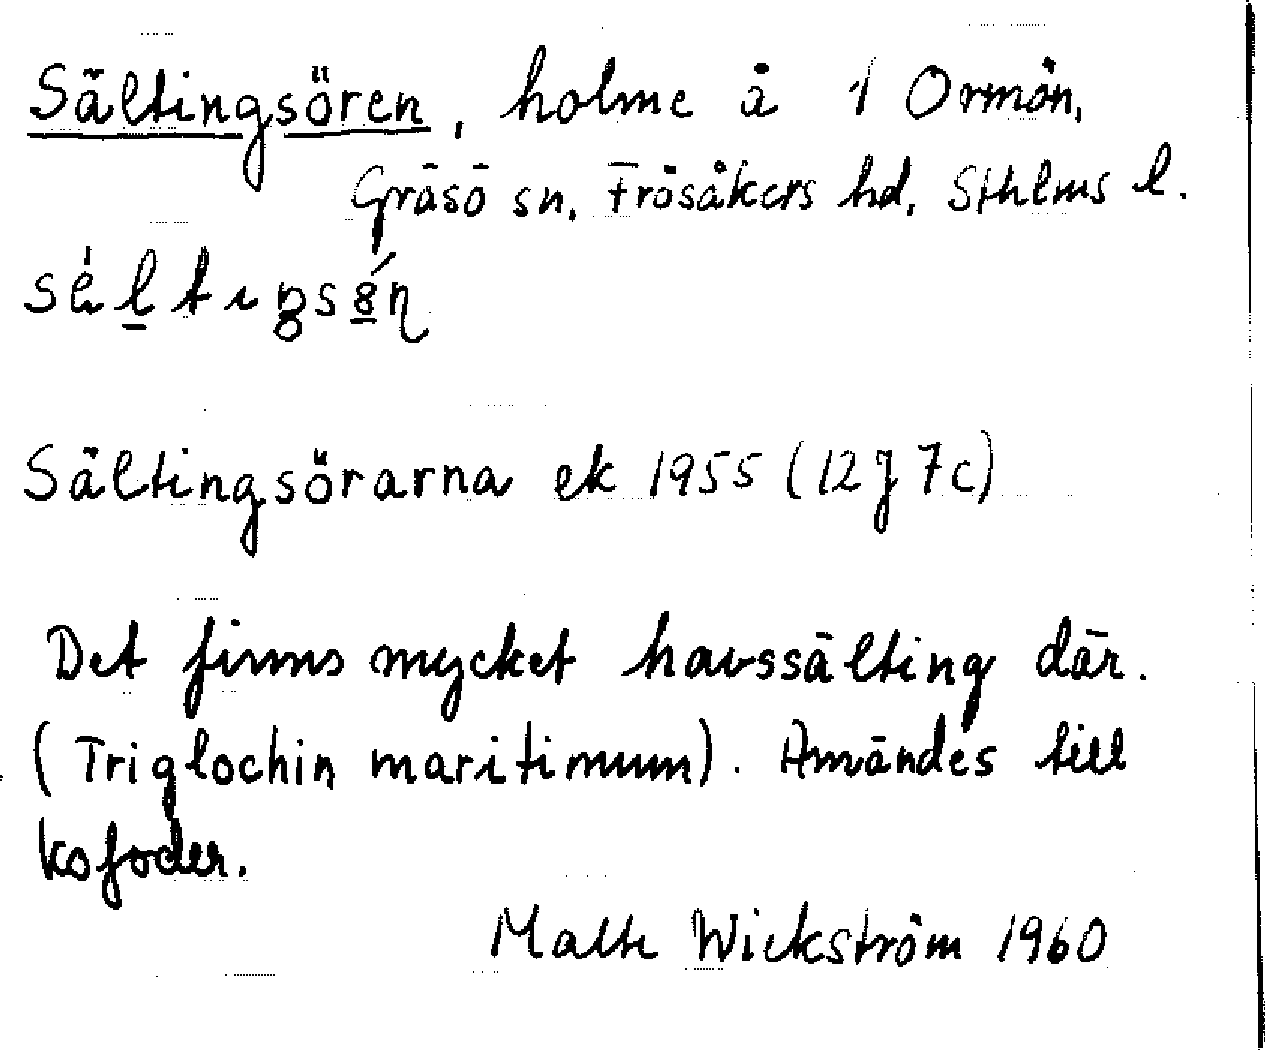 Sältingsören, holme å 1 Ormön,
Gräsö sn, Frösåkers hd, Sthlms l.
Sältingsörarna ek 1955 (12j 7c)
Det finns mycket havssälting där.
(Triglochin maritimum). Användes till
kofoder.
Malte Wickström 1960